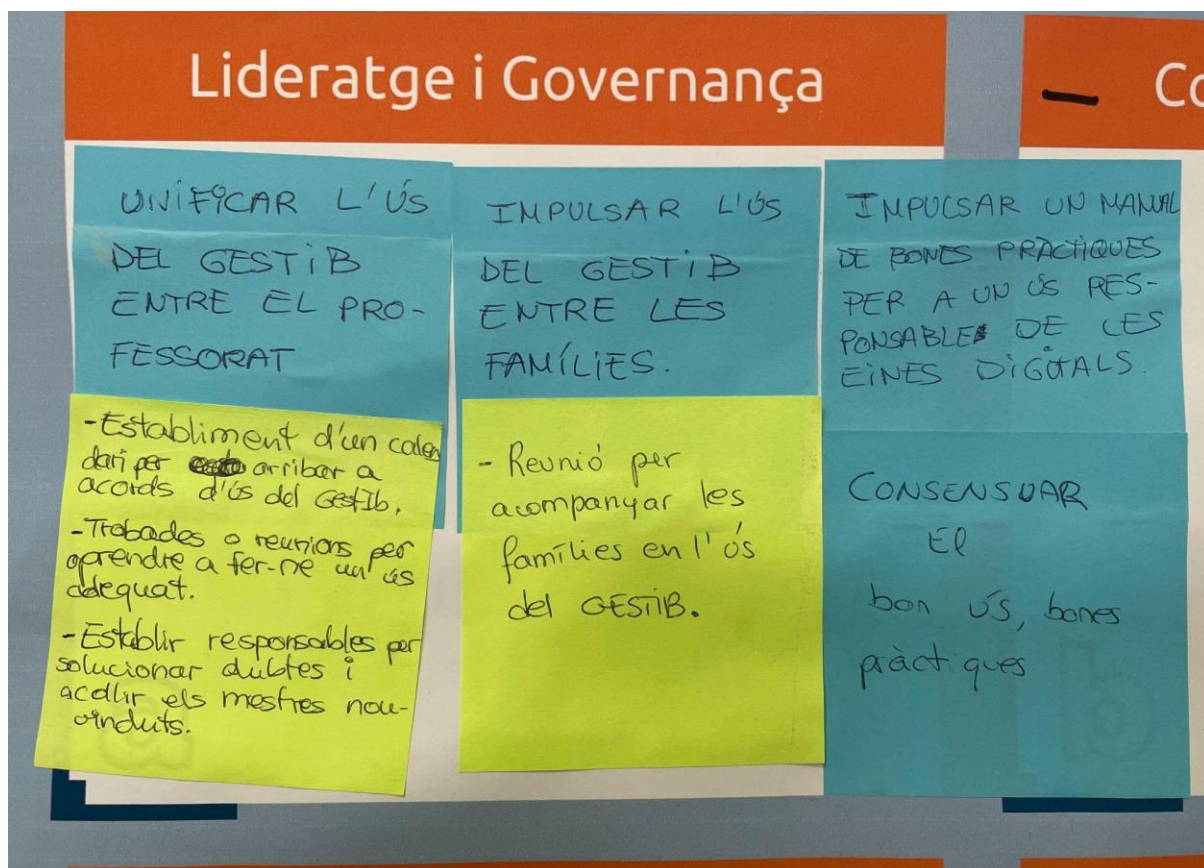 Lideratge i Governança
Co
UNIFICAR L'ÚS
DEL GESTIB
ENTRE EL PRO-
FESSORAT
-Establiment d'un calen
dari per arribar a
acords d'ús del GestIb.
-Trobades o reunions per
aprendre a fer-ne un ús
adequat.
-Establir responsables per
solucionar dubtes i
acollir els mestres nou-
vinduts.
IMPULSAR L'ÚS
DEL GESTIB
ENTRE LES
FAMÍLIES.
- Reunió per
acompanyar les
famílies en l'ús
del GESTIB.
IMPULSAR UN MANUAL
DE BONES PRÀCTIQUES
PER A UN ÚS RES-
PONSABLE DE LES
EINES DIGITALS.
CONSENSUAR
El
bon ús, bones
pràctiques